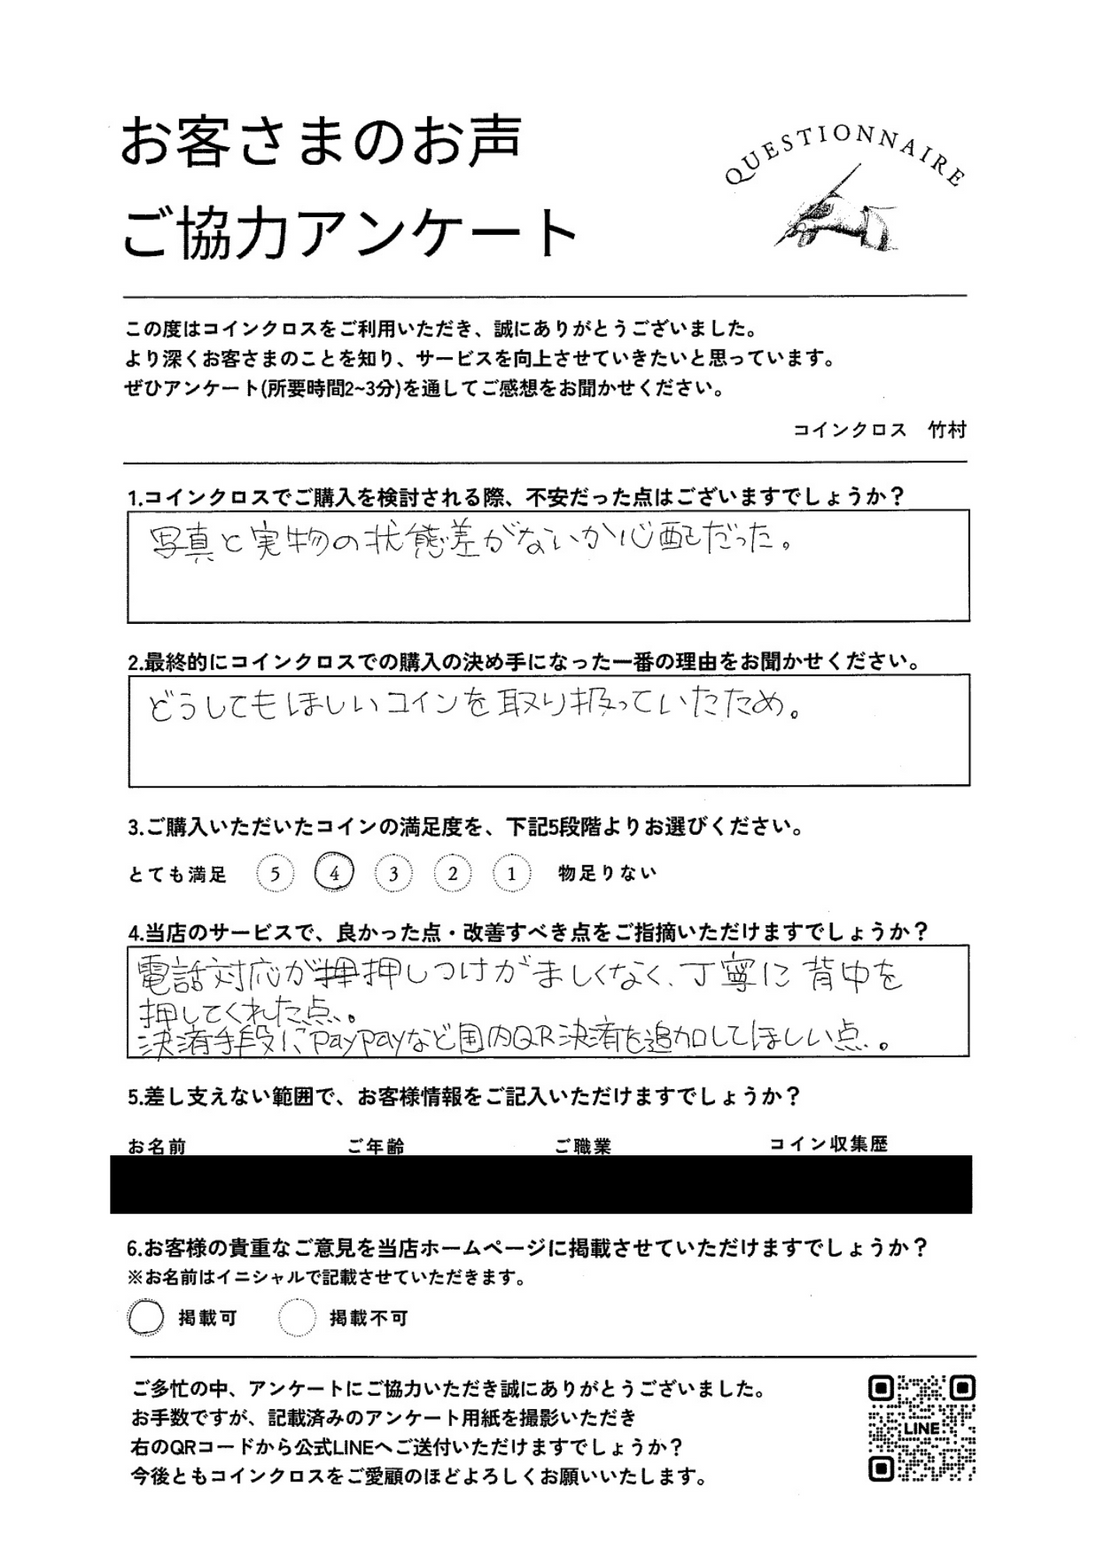 お客さまのお声
QUESTIONNAIRE
ご協力アンケート
この度はコインクロスをご利用いただき、誠にありがとうございました。
より深くお客さまのことを知り、サービスを向上させていきたいと思っています。
ぜひアンケート(所要時間2~3分)を通してご感想をお聞かせください。
コインクロス　竹村
1.コインクロスでご購入を検討される際、不安だった点はございますでしょうか？
写真と実物の状態差がないか心配だった。
2.最終的にコインクロスでの購入の決め手になった一番の理由をお聞かせください。
どうしてもほしいコインを取り扱っていたため。
3.ご購入いただいたコインの満足度を、下記5段階よりお選びください。
とても満足 5 4 3 2 1 物足りない
4.当店のサービスで、良かった点・改善すべき点をご指摘いただけますでしょうか？
電話対応が押しつけがましくなく、丁寧に背中を
押してくれた点。
決済手段にPayPayなど国内QR決済を追加してほしい点。
5.差し支えない範囲で、お客様情報をご記入いただけますでしょうか？
お名前 ご年齢 ご職業 コイン収集歴
6.お客様の貴重なご意見を当店ホームページに掲載させていただけますでしょうか？
※お名前はイニシャルで記載させていただきます。
掲載可 掲載不可
ご多忙の中、アンケートにご協力いただき誠にありがとうございました。
お手数ですが、記載済みのアンケート用紙を撮影いただき
右のQRコードから公式LINEへご送付いただけますでしょうか？
今後ともコインクロスをご愛顧のほどよろしくお願いいたします。
LINE